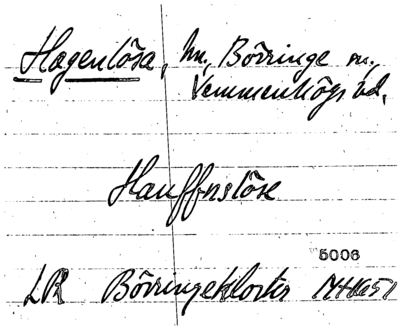 Hagenlösa, hn, Börringe sn,
Vemmenhögs hd.
Hauffnslöse
5006
LR Börringekloster